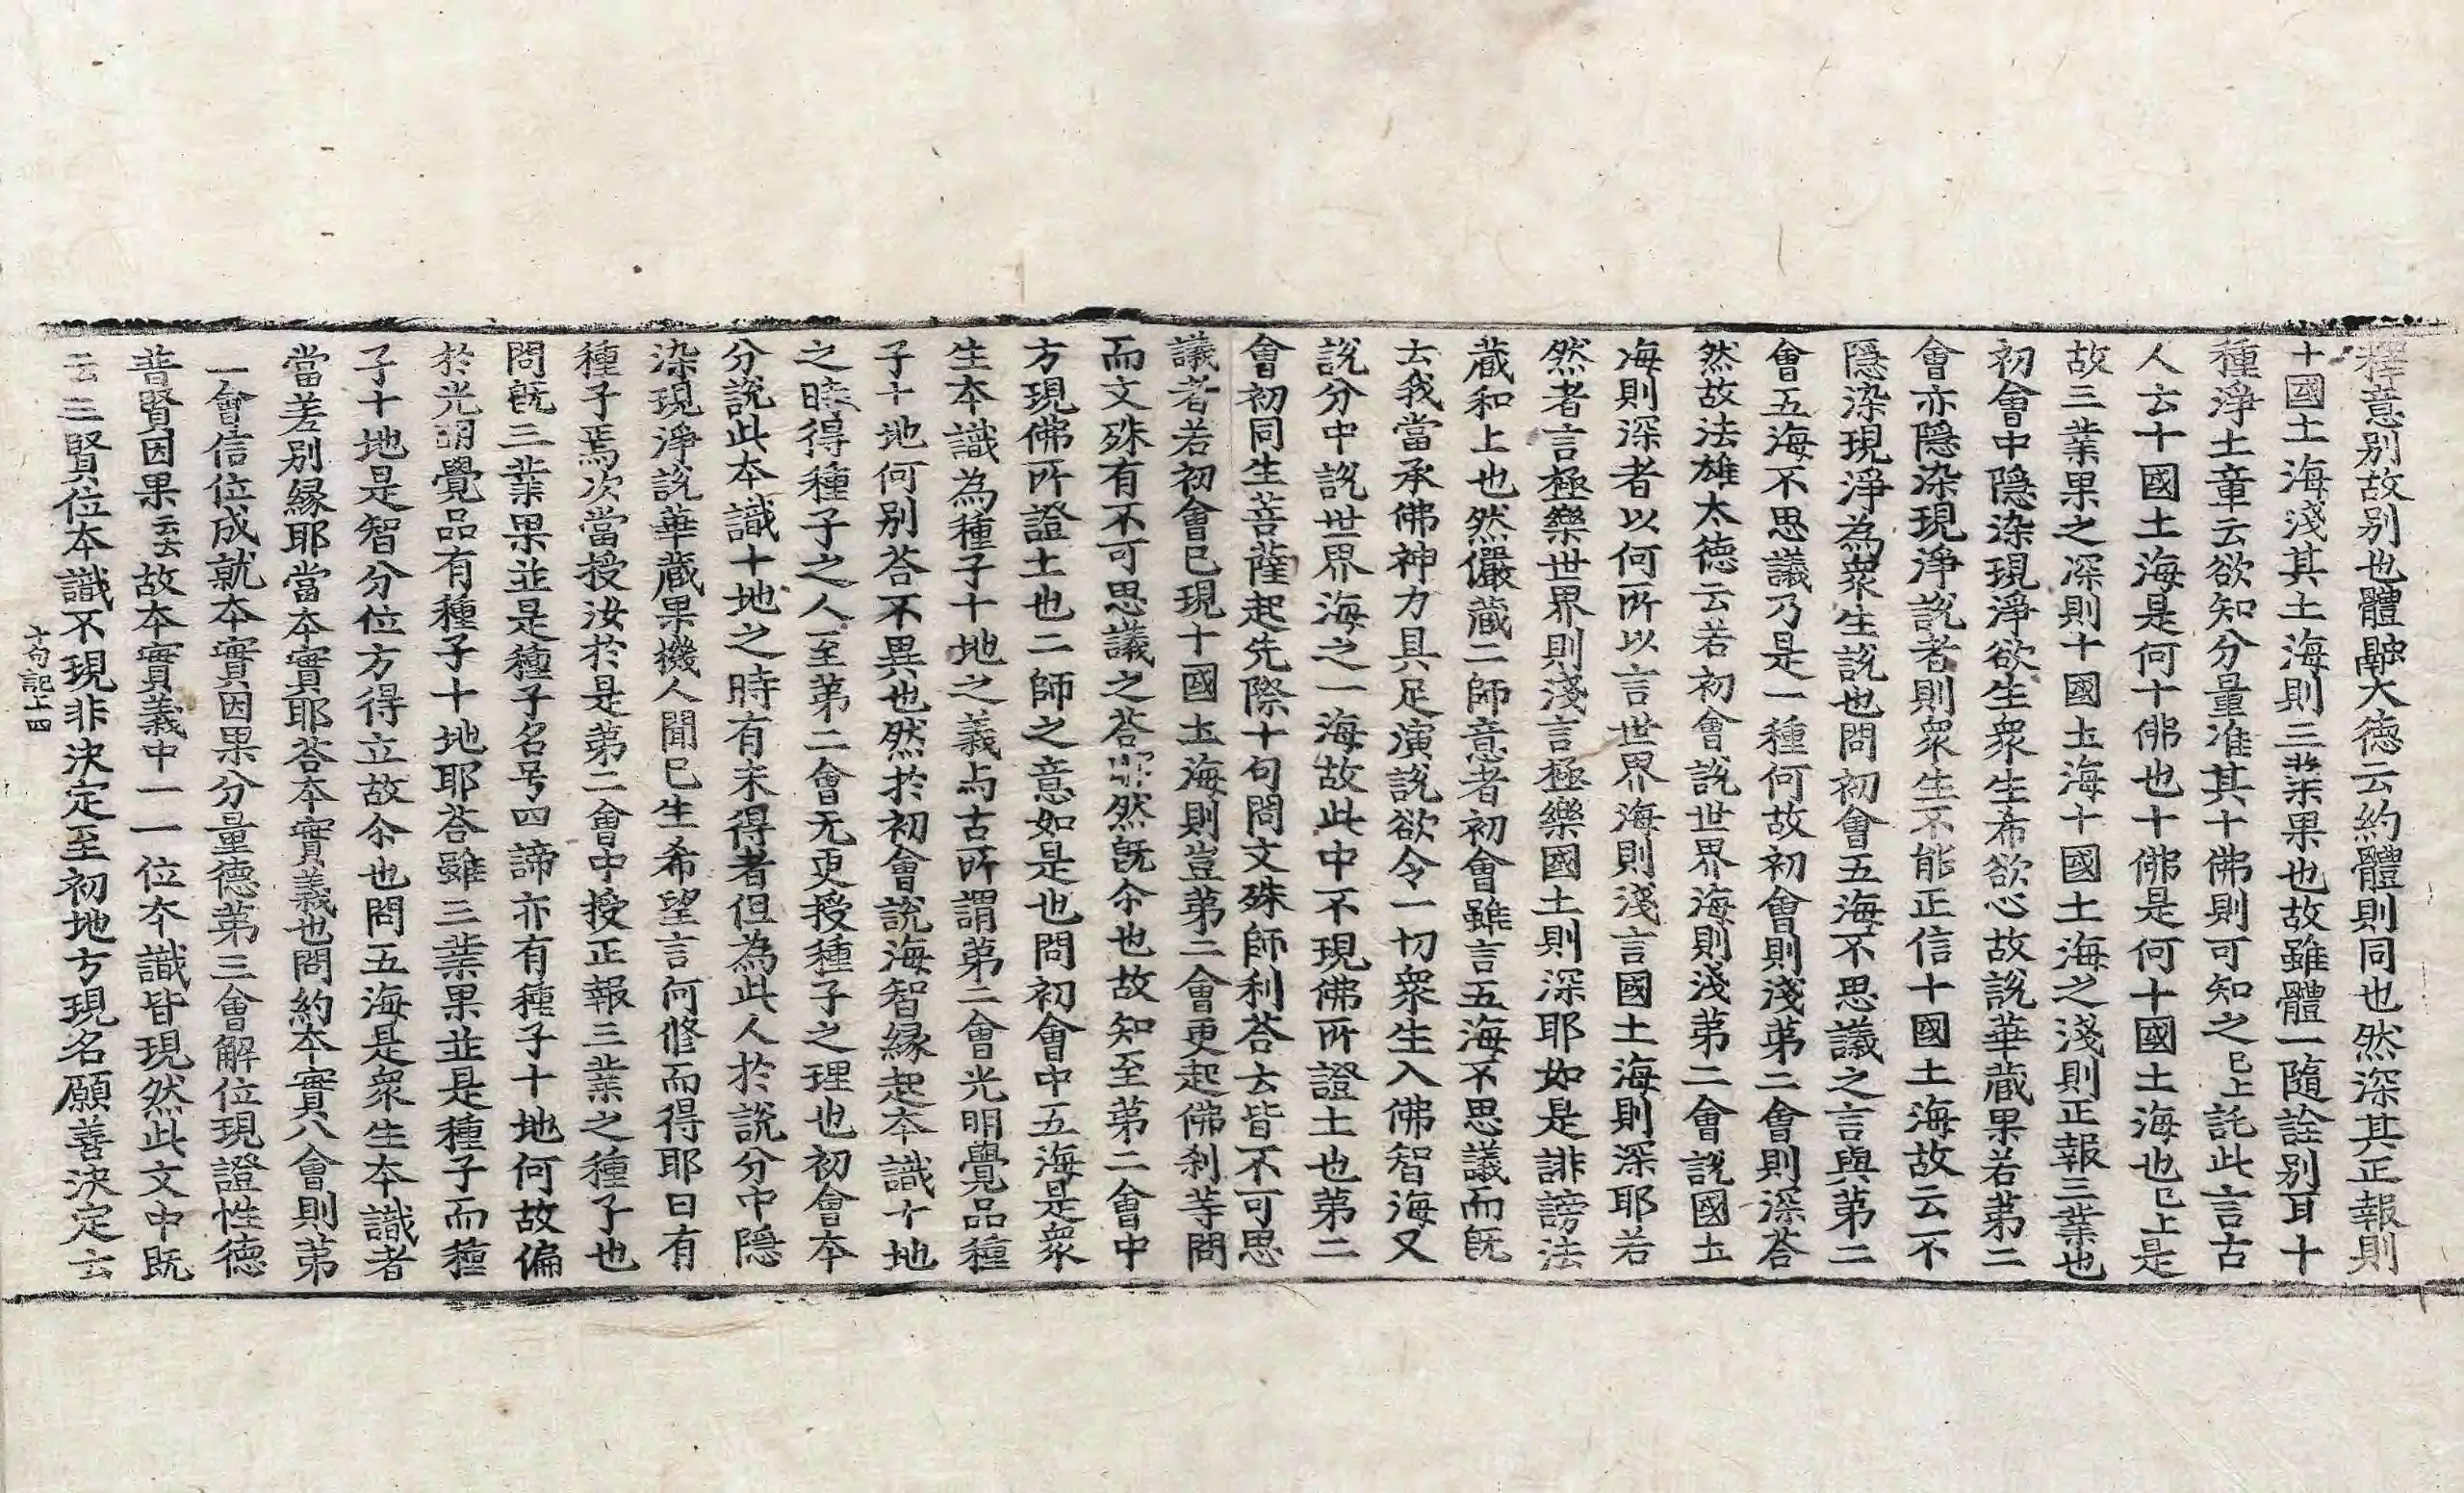 釋意別故別也體融大德云約體則同也然深其正報則
十國土海淺其土海則三業果也故雖體一隨詮別耳十
種淨土章云欲知分量准其十佛則可知之已上託此言古
人云十國土海是何十佛也十佛是何十國土海也已上是
故三業果之深則十國土海十國土海之淺則正報三業也
初會中隱染現淨欲生衆生希欲心故說華蔵果若苐二
會亦隱染現淨說者則衆生不能正信十國土海故云不
隱染現淨為衆生說也問初會五海不思議之言與苐二
會五海不思議乃是一種何故初會則淺苐二會則深荅
然故法雄大德云若初會說世界海則淺苐二會說國土
海則深者以何所以言世界海則淺言國土海則深耶若
然者言極樂世界則淺言極樂國土則深耶如是誹謗法
蔵和上也然儼蔵二師意者初會雖言五海不思議而旣
云我當承佛神力具足演說欲令一切衆生入佛智海又
說分中說世界海之一海故此中不現佛所證土也苐二
會初同生菩薩起先際十句問文殊師利荅云皆不可思
議者若初會已現十國土海則豈苐二會更起佛刹等問
而文殊有不可思議之荅耶然旣尒也故知至苐二會中
方現佛所證土也二師之意如是也問初會中五海是衆
生本識為種子十地之義与古所謂苐二會光明覺品種
子十地何別荅不異也然於初會說海智緣起本識十地
之時得種子之人至苐二會无更授種子之理也初會本
分說此本識十地之時有未得者但為此人於說分中隱
染現淨說華蔵果機人聞已生希望言何修而得耶曰有
種子焉次當授汝於是苐二會中授正報三業之種子也
問旣三業果並是種子名号四諦亦有種子十地何故偏
於光明覺品有種子十地耶荅雖三業果並是種子而種
子十地是智分位方得立故尒也問五海是衆生本識者
當差別緣耶當本實耶荅本實義也問約本實八會則苐
一會信位成就本實因果分量德苐三會解位現證性德
普賢因果云云故本實義中一一位本識皆現然此文中旣
云三賢位本識不現非決定至初地方現名願善決定云
十句記上四